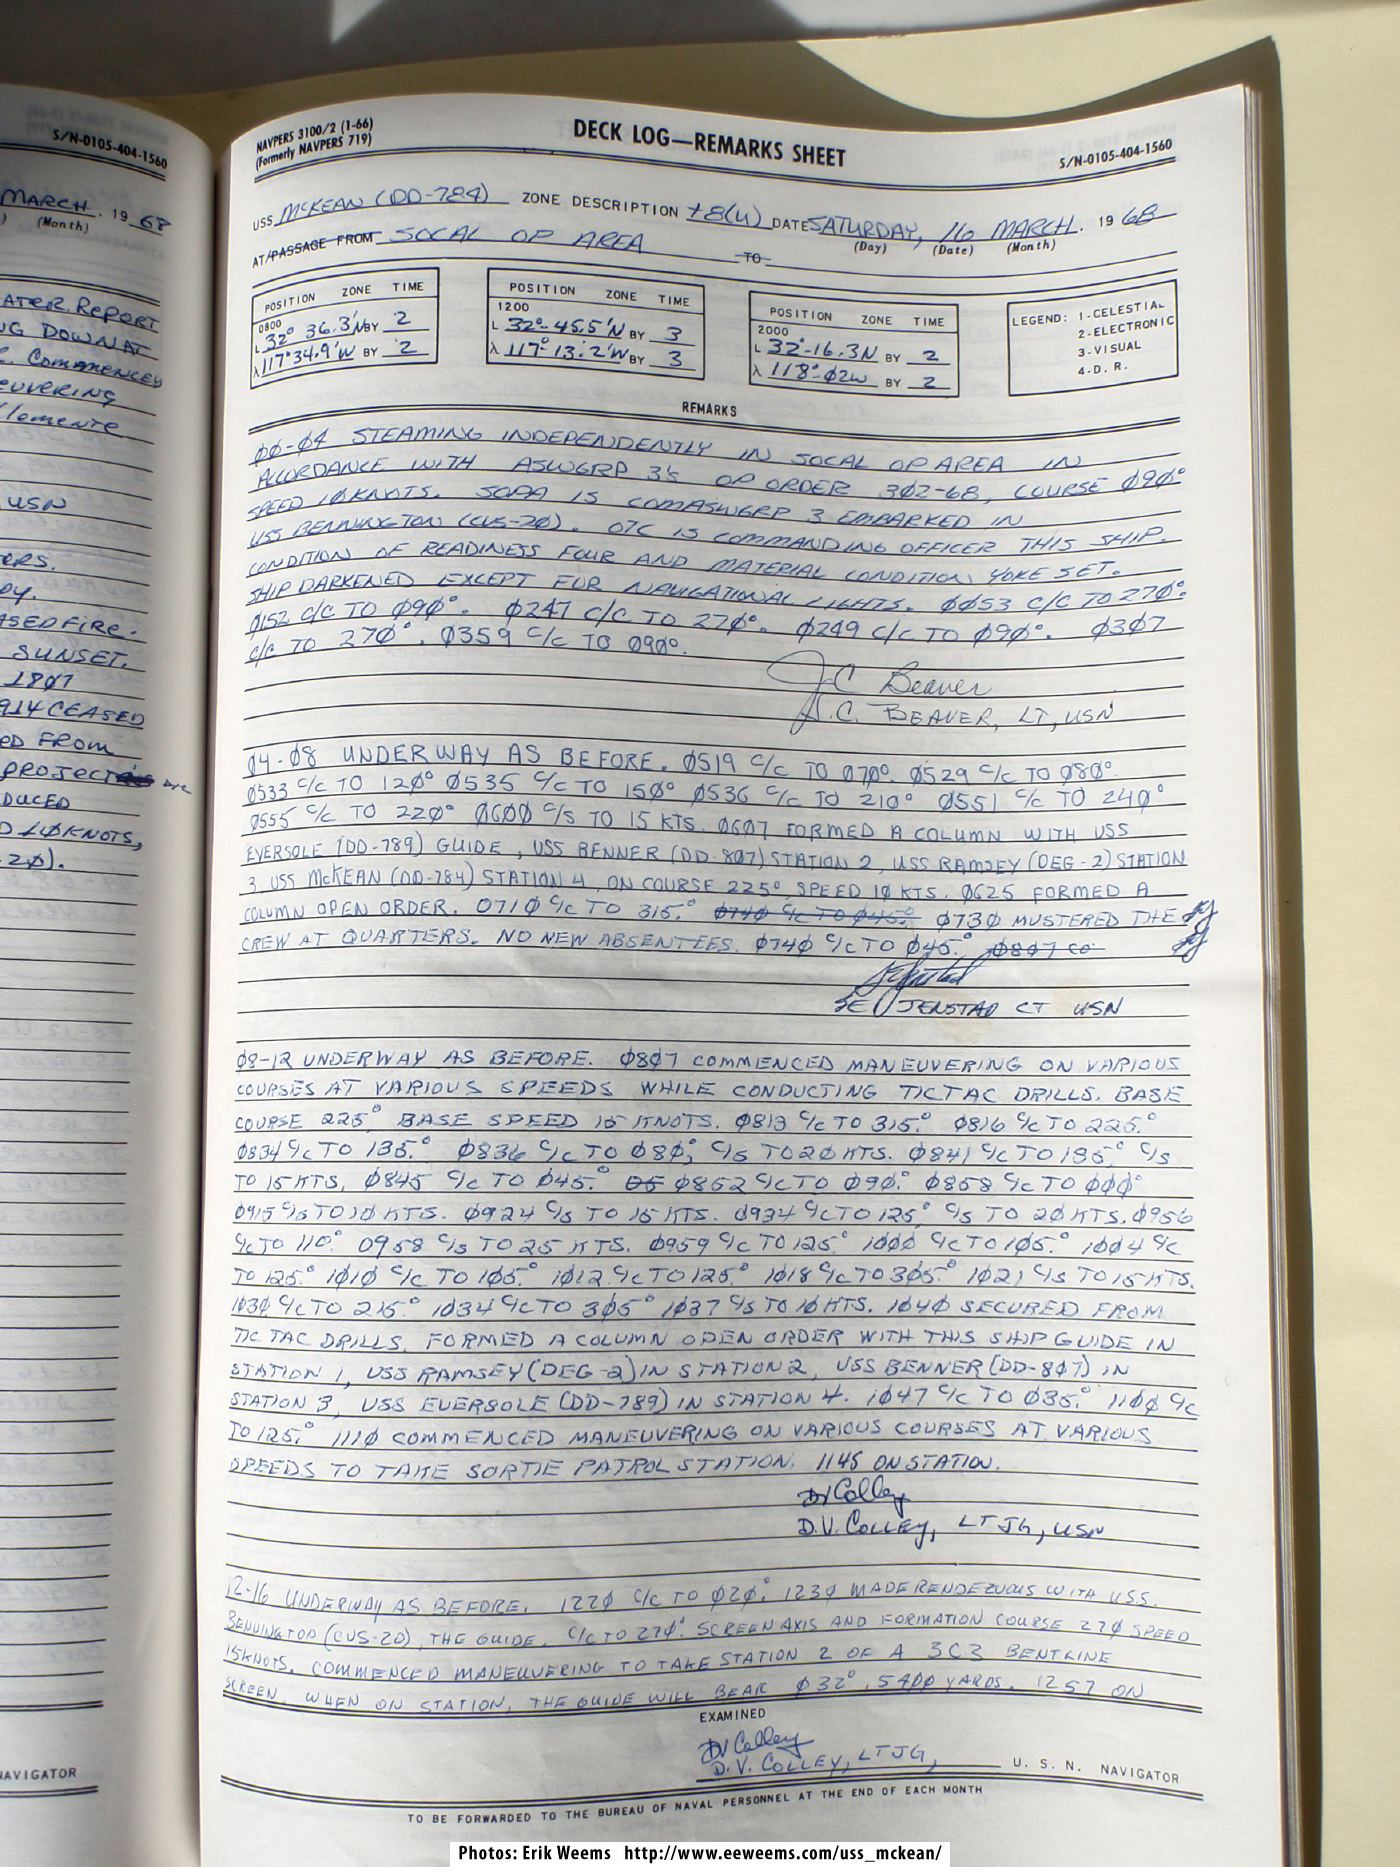 S/N-0105-404-1560
MARCH. 19 68
(Month)
ATER. REPORT
NG DOWN AT
E. COMMENCED
EUVERING
lemente
USN
ERS.
ASED FIRE.
SUNSET.
18Ø7
914 CEASED
ED FROM
PROJECT
DUCED
D 1ØKNOTS,
-2Ø).
NAVIGATOR
NAVPERS 3100/2 (1-66)
(Formerly NAVPERS 719)
DECK LOG—REMARKS SHEET
S/N-0105-404-1560
USS McKEAN (DD-784) ZONE DESCRIPTION +8(U) DATE SATURDAY, 16 MARCH. 19 68
(Day) (Date) (Month)
AT/PASSAGE FROM SOCAL OP AREA TO
POSITION ZONE TIME
0800
L 32° 36.3'N BY 2
λ 117°34.9'W BY 2
POSITION ZONE TIME
1200
L 32°-45.5'N BY 3
λ 117°-13.2'W BY 3
POSITION ZONE TIME
2000
L 32°-16.3N BY 2
λ 118°-Ø2W BY 2
LEGEND: 1-CELESTIAL
2-ELECTRONIC
3-VISUAL
4-D. R.
REMARKS
ØØ-Ø4 STEAMING INDEPENDENTLY IN SOCAL OP AREA IN
ACCORDANCE WITH ASWGRP 3'S OP ORDER 3Ø2-68, COURSE Ø9Ø°
SPEED 1ØKNOTS. SOPA IS COMASWGRP 3 EMBARKED IN
USS BENNINGTON (CVS-2Ø). OTC IS COMMANDING OFFICER THIS SHIP.
CONDITION OF READINESS FOUR AND MATERIAL CONDITION YOKE SET.
SHIP DARKENED EXCEPT FOR NAVIGATIONAL LIGHTS. ØØ53 C/C TO 27Ø°.
Ø152 C/C TO Ø9Ø°. Ø247 C/C TO 27Ø°. Ø249 C/C TO Ø9Ø°. Ø3Ø7
C/C TO 27Ø°. Ø359 C/C TO Ø9Ø°.
J C Beaver
J.C. BEAVER, LT, USN
Ø4-Ø8 UNDERWAY AS BEFORE. Ø519 C/C TO Ø7Ø°. Ø529 C/C TO Ø8Ø°.
Ø533 C/C TO 12Ø° Ø535 C/C TO 15Ø° Ø536 C/C TO 21Ø° Ø551 C/C TO 24Ø°
Ø555 C/C TO 22Ø° Ø6ØØ C/S TO 15 KTS. Ø6Ø7 FORMED A COLUMN WITH USS
EVERSOLE (DD-789) GUIDE, USS BENNER (DD-8Ø7) STATION 2, USS RAMSEY (DEG-2) STATION
3, USS McKEAN (DD-784) STATION 4, ON COURSE 225° SPEED 1Ø KTS. Ø625 FORMED A
COLUMN OPEN ORDER. 071Ø C/C TO 315.° Ø74Ø C/C TO Ø45.° Ø73Ø MUSTERED THE
CREW AT QUARTERS. NO NEW ABSENTEES. Ø74Ø C/C TO Ø45.° Ø8Ø7 CO
JENSTAD LT USN
Ø8-12 UNDERWAY AS BEFORE. Ø8Ø7 COMMENCED MANEUVERING ON VARIOUS
COURSES AT VARIOUS SPEEDS WHILE CONDUCTING TICTAC DRILLS. BASE
COURSE 225,° BASE SPEED 15 KNOTS. Ø813 C/C TO 315.° Ø816 C/C TO 225.°
Ø834 C/C TO 135.° Ø836 C/C TO Ø8Ø,° C/S TO 2Ø KTS. Ø841 C/C TO 135,° C/S
TO 15 KTS. Ø845 C/C TO Ø45.° Ø852 C/C TO Ø9Ø.° Ø858 C/C TO ØØØ°
Ø915 C/S TO 1Ø KTS. Ø924 C/S TO 15 KTS. Ø934 C/C TO 125,° C/S TO 2Ø KTS. Ø956
C/C TO 110.° 0958 C/S TO 25 KTS. Ø959 C/C TO 125.° 1ØØØ C/C TO 1Ø5.° 1ØØ4 C/C
TO 125.° 1Ø1Ø C/C TO 1Ø5.° 1Ø12 C/C TO 125.° 1Ø18 C/C TO 3Ø5.° 1Ø21 C/S TO 15 KTS.
1Ø3Ø C/C TO 215.° 1Ø34 C/C TO 3Ø5° 1Ø37 C/S TO 1Ø KTS. 1Ø4Ø SECURED FROM
TIC TAC DRILLS. FORMED A COLUMN OPEN ORDER WITH THIS SHIP GUIDE IN
STATION 1, USS RAMSEY (DEG-2) IN STATION 2, USS BENNER (DD-8Ø7) IN
STATION 3, USS EVERSOLE (DD-789) IN STATION 4. 1Ø47 C/C TO Ø35.° 11ØØ C/C
TO 125.° 111Ø COMMENCED MANEUVERING ON VARIOUS COURSES AT VARIOUS
SPEEDS TO TAKE SORTIE PATROL STATION. 1145 ON STATION.
DV Colley
D.V. COLLEY, LTJG, USN
12-16 UNDERWAY AS BEFORE. 122Ø C/C TO Ø2Ø.° 123Ø MADE RENDEZVOUS WITH USS
BENNINGTON (CVS-2O), THE GUIDE. C/C TO 27Ø.° SCREEN AXIS AND FORMATION COURSE 27Ø SPEED
15KNOTS. COMMENCED MANEUVERING TO TAKE STATION 2 OF A 3C3 BENTLINE
SCREEN. WHEN ON STATION, THE GUIDE WILL BEAR Ø32°, 54ØØ YARDS. 1257 ON
EXAMINED
DV Colley
D.V. COLLEY, LTJG, U. S. N. NAVIGATOR
TO BE FORWARDED TO THE BUREAU OF NAVAL PERSONNEL AT THE END OF EACH MONTH
Photos: Erik Weems http://www.eeweems.com/uss_mckean/